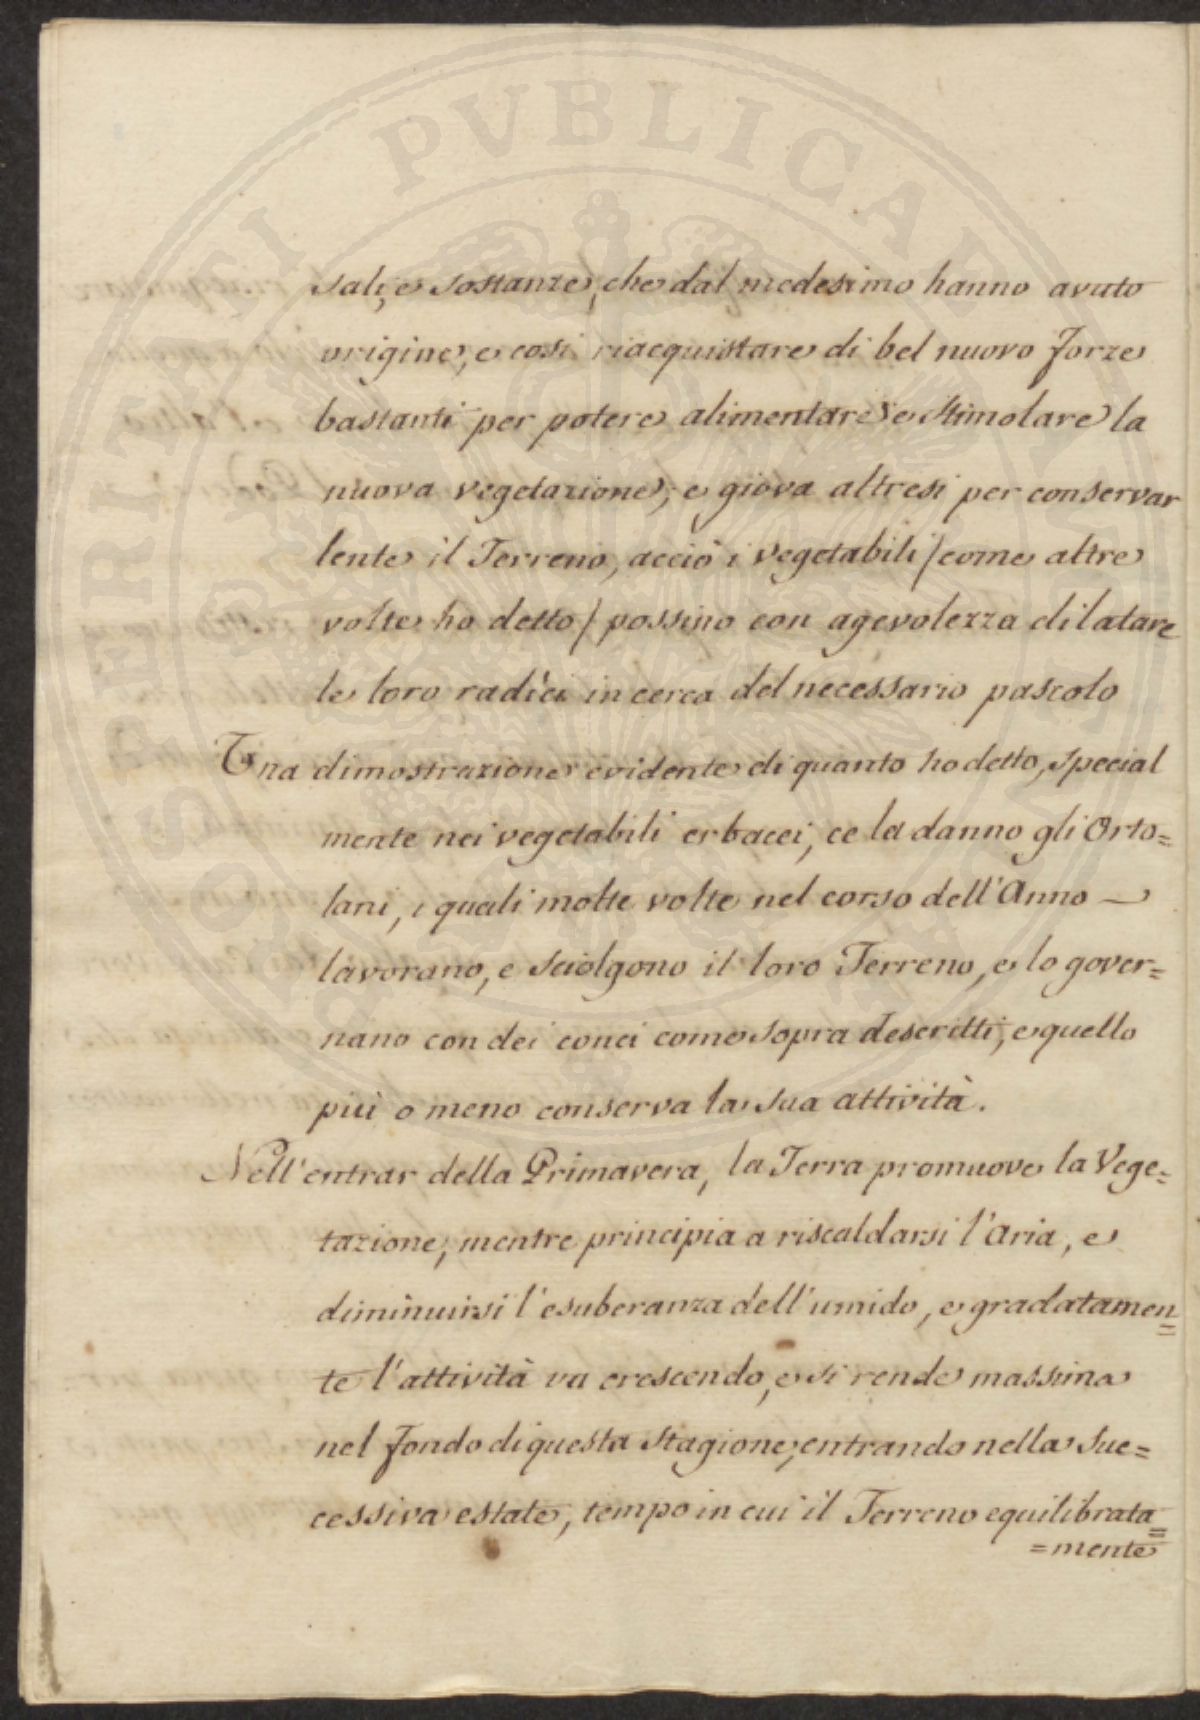 sali, e sostanze, che dal medesimo hanno avuto
origine, e così riacquistare di bel nuovo forze
bastanti per potere alimentare, e stimolare la
nuova vegetazione; e giova altresi per conservar
lente il Terreno, acciò i vegetabili / come altre
volte ho detto / possino con agevolezza dilatare
le loro radici in cerca del necessario pascolo
Una dimostrazione evidente di quanto ho detto, special
mente nei vegetabili erbacei, ce la danno gli Orto=
lani, i quali molte volte nel corso dell'Anno —
lavorano, e sciolgono il loro Terreno, e lo gover=
nano con dei conci come sopra descritti, e quello
più o meno conserva la sua attività.
Nell'entrar della Primavera, la Terra promuove la Vege=
tazione, mentre principia a riscaldarsi l'Aria, e
diminuirsi l'esuberanza dell'umido, e gradatamen=
te l'attività va crescendo, e si rende massima
nel fondo di questa stagione, entrando nella suc=
cessiva estate, tempo in cui il Terreno equilibrata=
=mente
PROSPERITATI PVBLICAE AVGENDAE